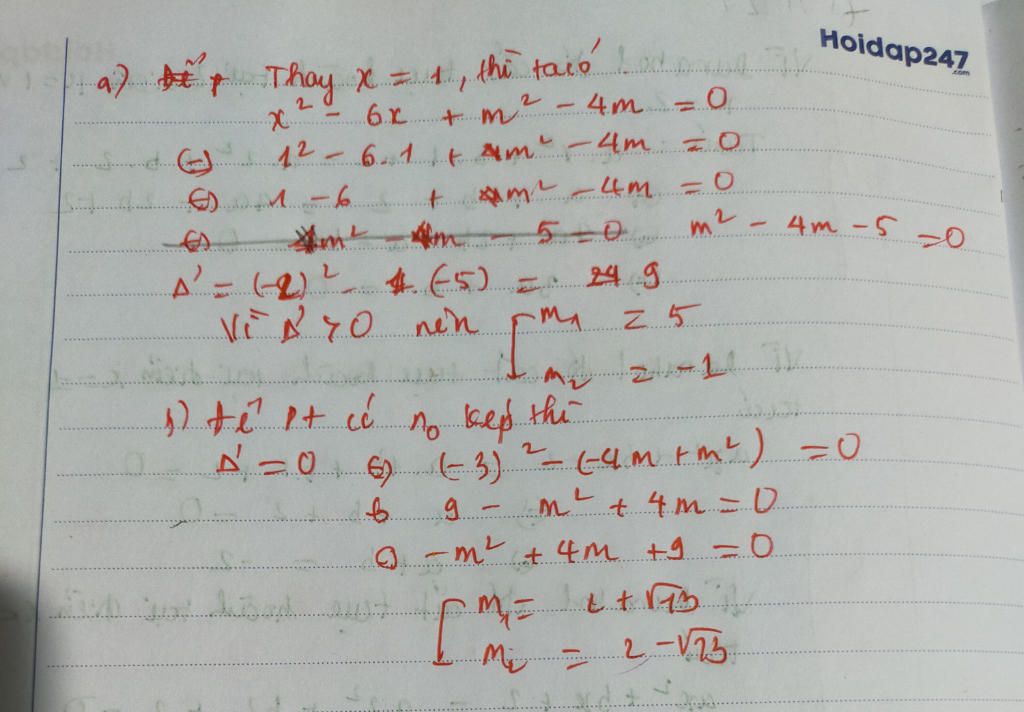 Hoidap247
.com
a) Thay x = 1, thì ta có
x² - 6x + m² - 4m = 0
⇔ 1² - 6.1 + m² - 4m = 0
⇔ 1 - 6 + m² - 4m = 0
⇔ m² - 4m - 5 = 0 m² - 4m - 5 = 0
Δ' = (-2)² - 1. (-5) = 9
Vì Δ' > 0 nên [ m₁ = 5
m₂ = -1
b) để pt có n₀ kép thì
Δ' = 0 ⇔ (-3)² - (-4m + m²) = 0
⇔ 9 - m² + 4m = 0
⇔ -m² + 4m + 9 = 0
[ m₁ = 2 + √13
m₂ = 2 - √13